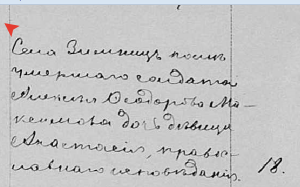 Села Зимницъ послѣ
умершаго солдата
Алексѣя Ѳеодорова Ма-
ксимова дочь дѣвица
Анастасія, правос-
лавнаго исповѣданія. 18.